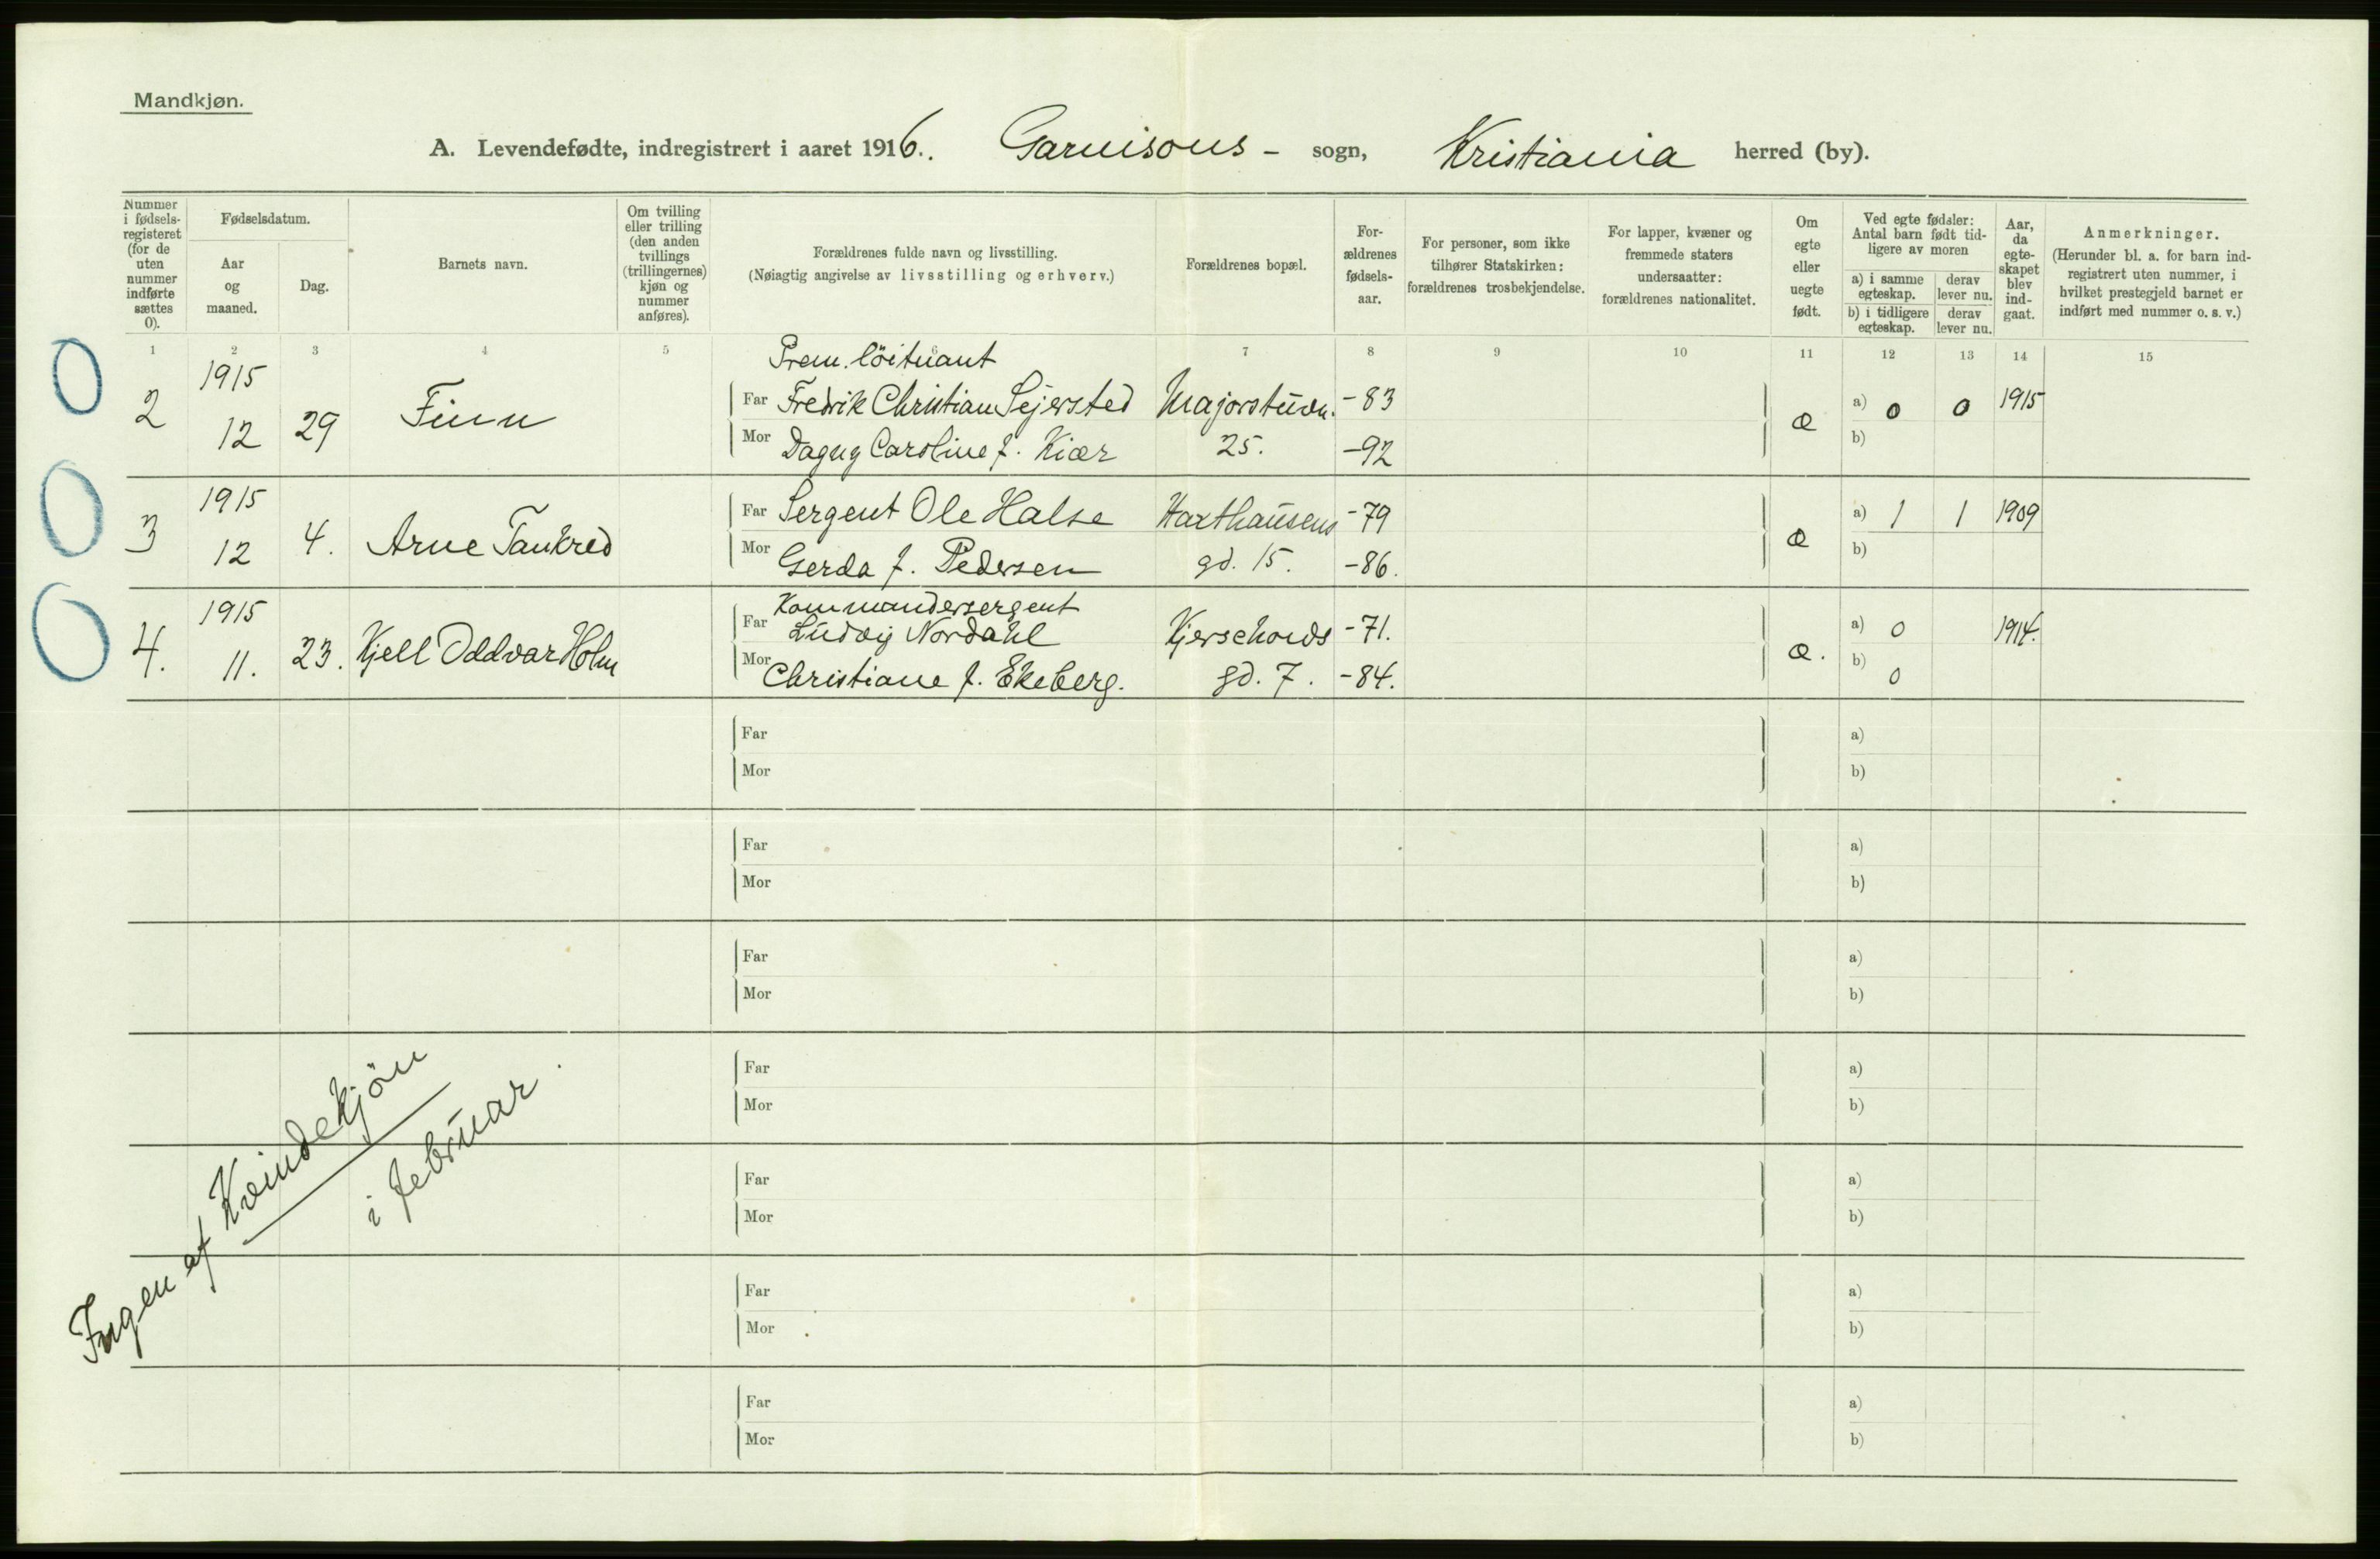 Mandkjøn.
A. Levendefødte, indregistrert i aaret 1916. Garnisons- sogn, Kristiania herred (by).
Nummer i fødsels-registeret (for de uten nummer indførte sættes 0).
Fødselsdatum.
Aar og maaned.
Dag.
Barnets navn.
Om tvilling eller trilling (den anden tvillings (trillingernes) kjøn og nummer anføres).
Forældrenes fulde navn og livsstilling.
(Nøiagtig angivelse av livsstilling og erhverv.)
Forældrenes bopæl.
For-ældrenes fødsels-aar.
For personer, som ikke tilhører Statskirken: forældrenes trosbekjendelse.
For lapper, kvæner og fremmede staters undersaatter: forældrenes nationalitet.
Om egte eller uegte født.
Ved egte fødsler: Antal barn født tid-ligere av moren
a) i samme egteskap. derav lever nu.
b) i tidligere egteskap. derav lever nu.
Aar, da egte-skapet blev ind-gaat.
Anmerkninger.
(Herunder bl. a. for barn ind-registrert uten nummer, i hvilket prestegjeld barnet er indført med nummer o. s. v.)
1 2 3 4 5 6 7 8 9 10 11 12 13 14 15
0 2 1915 12 29 Finn
Prem. löitnant
Far Fredrik Christian Sejersted Majorstuvn. -83
Mor Dagny Caroline f. Kiær 25. -92
æ a) 0 0 1915
b)
0 3 1915 12 4. Arne Tankred
Far Sergent Ole Halse Haxthausens -79
Mor Gerda f. Pedersen gd. 15. -86.
æ a) 1 1 1909
b)
0 4. 1915 11. 23. Kjell Oddvar Holm
Kommandersergent
Far Ludvig Nordahl Kjerschouds -71.
Mor Christiane f. Ekeberg. gd. 7. -84.
æ. a) 0 1914.
b) 0
Far a)
Mor b)
Far a)
Mor b)
Far a)
Mor b)
Far a)
Mor b)
Far a)
Mor b)
Far a)
Mor b)
Far a)
Mor b)
Ingen af Kvindekjön
i februar.